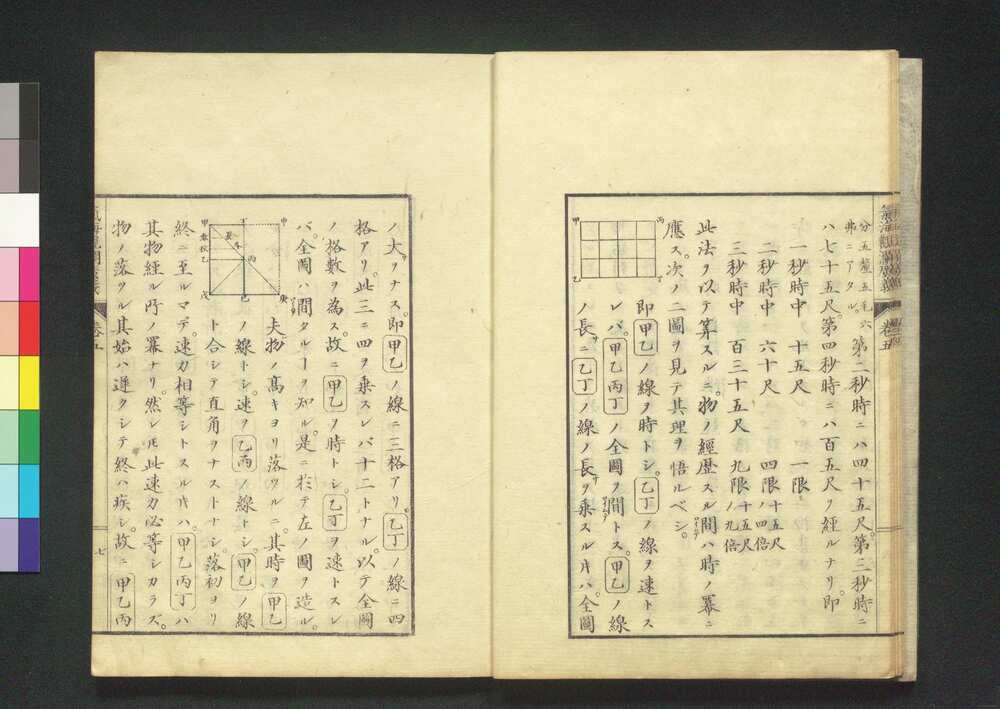 分五釐五毛六
弗ニアタル。
第二秒時ニハ四十五尺。第三秒時ニ
ハ七十五尺。第四秒時ニハ百五尺ヲ經ルナリ。即
一秒時中 十五尺 一限
二秒時中 六十尺 四限 十五尺ノ四倍
三秒時中 百三十五尺 九限 十五尺ノ九倍
此法ヲ以テ算スルニ。物ノ經歷スル間ハ時ノ冪ニ
應ス。次ノ二圖ヲ見テ其理ヲ悟ルベシ。
甲
丙
乙
丁
即甲乙ノ線ヲ時トシ。乙丁ノ線ヲ速トス
レバ。甲乙丙丁ノ全圖ヲ間トス。甲乙ノ線
ノ長ニ乙丁ノ線ノ長ヲ乘スル𪜈ハ。全圖
氣海觀瀾廣義
卷五
ノ大ヲナス。即甲乙ノ線ニ三格アリ。乙丁ノ線ニ四
格アリ。此三ニ四ヲ乘スレバ十二トナル。以テ全圖
ノ格數ヲ為ス。故ニ甲乙ヲ時トシ。乙丁ヲ速トスレ
バ。全圖ハ間タルヿヲ知ル。是ニ於テ左ノ圖ヲ造ル。
甲
壬
申
乙
丙
戊
己
庚
夫物ノ髙キヨリ落ツルニ。其時ヲ甲乙
ノ線トシ。速ヲ乙丙ノ線トシ。甲乙ノ線
ト合シテ直角ヲナストナシ。落初ヨリ
終ニ至ルマデ。速力相等シトスル𪜈ハ。甲乙丙丁ハ
其物經ル所ノ冪ナリ。然レ𪜈此速力必等シカラズ。
物ノ落ツル其始ハ遲クシテ終ハ疾シ。故ニ甲乙丙
卷五
七